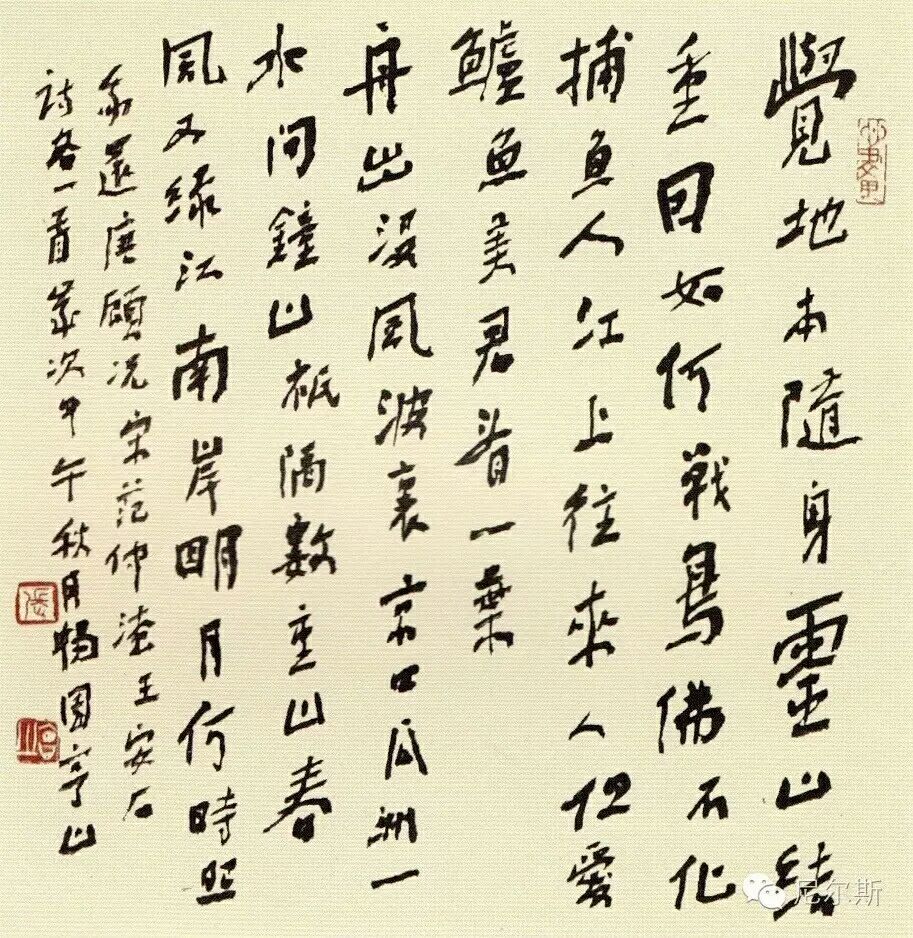 覺地本隨身靈山結
重因如何戰鳥佛不化
捕魚人江上往來人但愛
鱸魚美君看一葉
舟出沒風波裏京口瓜洲一
水間鐘山衹隔數重山春
風又綠江南岸明月何時照
我還唐顧況宋范仲淹王安石
詩各一首歲次甲午秋月園山
尼尔斯